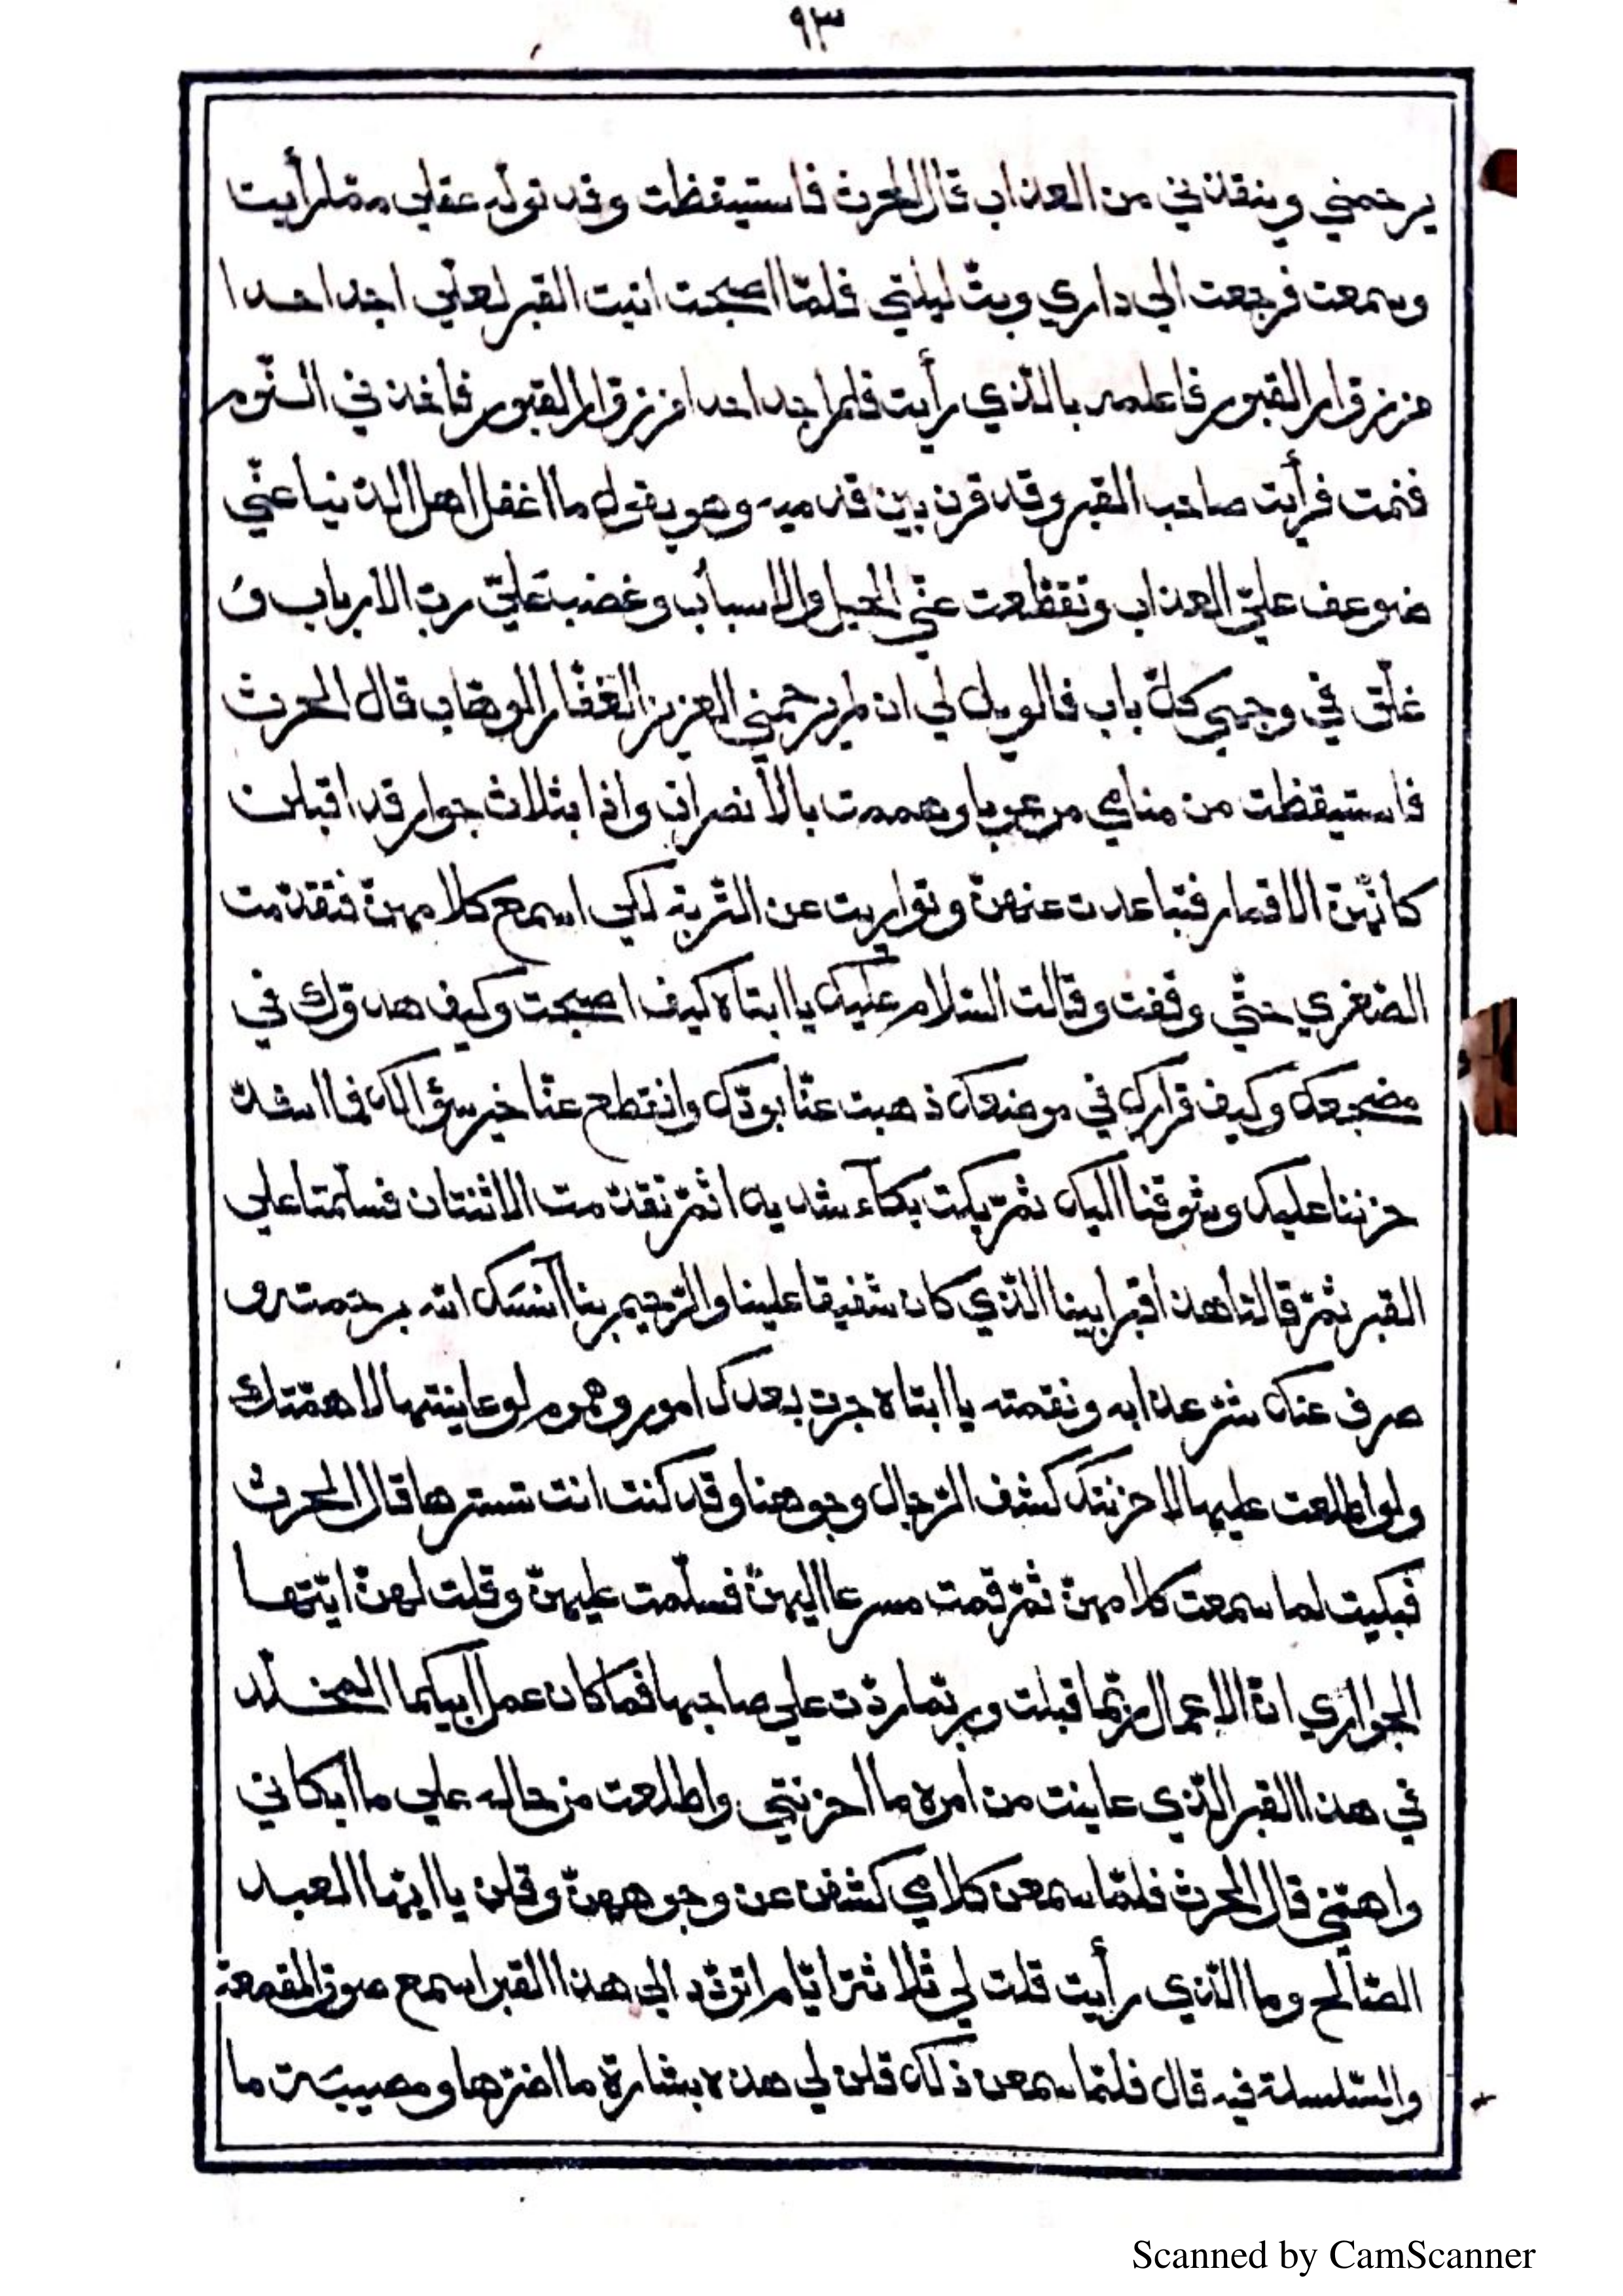 ٩٣
يرحمني وينقذني من العذاب قال الحرث فاستيقظت وقد تولّه عقلي ممّا رأيت
وسمعت فرجعت الي داري وبتّ ليلتي فلمّا اصبحت اتيت القبر لعلّي اجد احدا
من زوّار القبور فاعلمه بالّذي رأيت فلم اجد احدا من زوّار القبور فاخذني النّوم
فنمت فرأيت صاحب القبر وقد قرن بين قدميه وهو يقول ما اغفل اهل الدنيا عنّي
ضوعف عليّ العذاب وتقطّعت عنّي الحيل والاسباب وغضب عليّ ربّ الارباب و
غلّق في وجهي كلّ باب فالويل لي ان لم يرحمني العزيز الغفّار الوهّاب قال الحرث
فاستيقظت من منامي مرعوبا وهممت بالأنصراف واذا بثلاث جوار قد اقبلن
كانّهنّ الاقمار فتباعدت عنهنّ وتواريت عن التّربة لكي اسمع كلامهنّ فتقدّمت
الصّغري حتّي وقفت وقالت السّلام عليك يا ابتاه كيف اصبحت وكيف هدوّك في
مضجعك وكيف قرارك في موضعك ذهبت عنّا بودّك وانقطع عنّا خير سؤالك فما اشدّ
حزننا عليك وشوقنا اليك ثمّ بكت بكآء شديدا ثمّ تقدّمت الاثنتان فسلّمتا علي
القبر ثمّ قالتا هذا قبر ابينا الّذي كان شفيقا علينا والرّحيم بنا آنسك الله برحمته و
صرف عنك شرّ عذابه ونقمته يا ابتاه جرت بعدك امور وهموم لو عاينتها لاهمّتك
ولو اطلعت عليها لاحزنتك كشف الرّجال وجوهنا وقد كنت انت تسترها قال الحرث
فبكيت لما سمعت كلامهنّ ثمّ قمت مسرعا اليهنّ فسلّمت عليهنّ وقلت لهنّ ايّتها
الجواري انّ الاعمال ربّما قبلت وربّما ردّت علي صاحبها فما كان عمل ابيكما المخلّد
في هذا القبر الّذي عاينت من أمره ما احزنني واطلعت من حاله علي ما ابكاني
واهمّني قال الحرث فلمّا سمعن كلامي كشفن عن وجوههنّ وقلن يا ايّها العبد
الصّالح وما الّذي رأيت قلت لي ثلاثة ايّام اتردّد الي هذا القبر اسمع صوت المقمعة
والسّلسلة فيه قال فلمّا سمعن ذلك قلن لي هذه بشارة ما اضرّها ومصيبة ما
Scanned by CamScanner